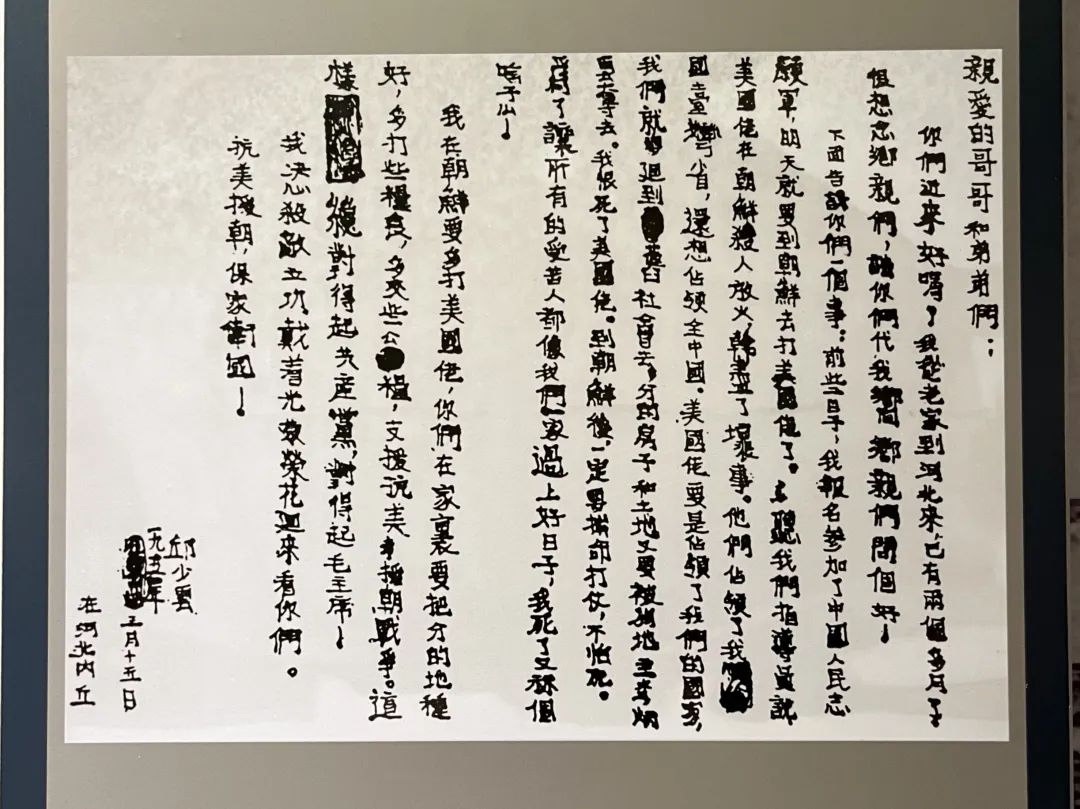 親愛的哥哥和弟弟們：
你們近來好嗎？我從老家到河北來，已有兩個多月了
但想念鄉親們，請你們代我向鄉親們問個好！
下面告訴你們一個事：前些日子，我報名參加了中國人民志
願軍，明天就要到朝鮮去打美國佬了。聽我們指導員說
美國佬在朝鮮殺人放火，幹盡了壞事。他們佔領了我
國臺灣省，還想佔領全中國。美國佬要是佔領了我們的國家，
我們就迴到舊社會去，分的房子和土地又要被地主
要奪去。我恨死了美國佬。到朝鮮後，一定要拚命打仗，不怕死。
爲了讓所有的受苦人都像我們一家過上好日子，我死了又祘個
啥子仏！
我在朝鮮要多打美國佬，你們在家裏要把分的地種
好，多打些糧食，多交些公糧，支援抗美援朝戰爭。這
樣對得起共産黨，對得起毛主席！
我决心殺敵立功戴着光榮花迴來看你們。
抗美援朝，保家衛國！
邱少雲
一九五一年
三月十五日
在河北内丘